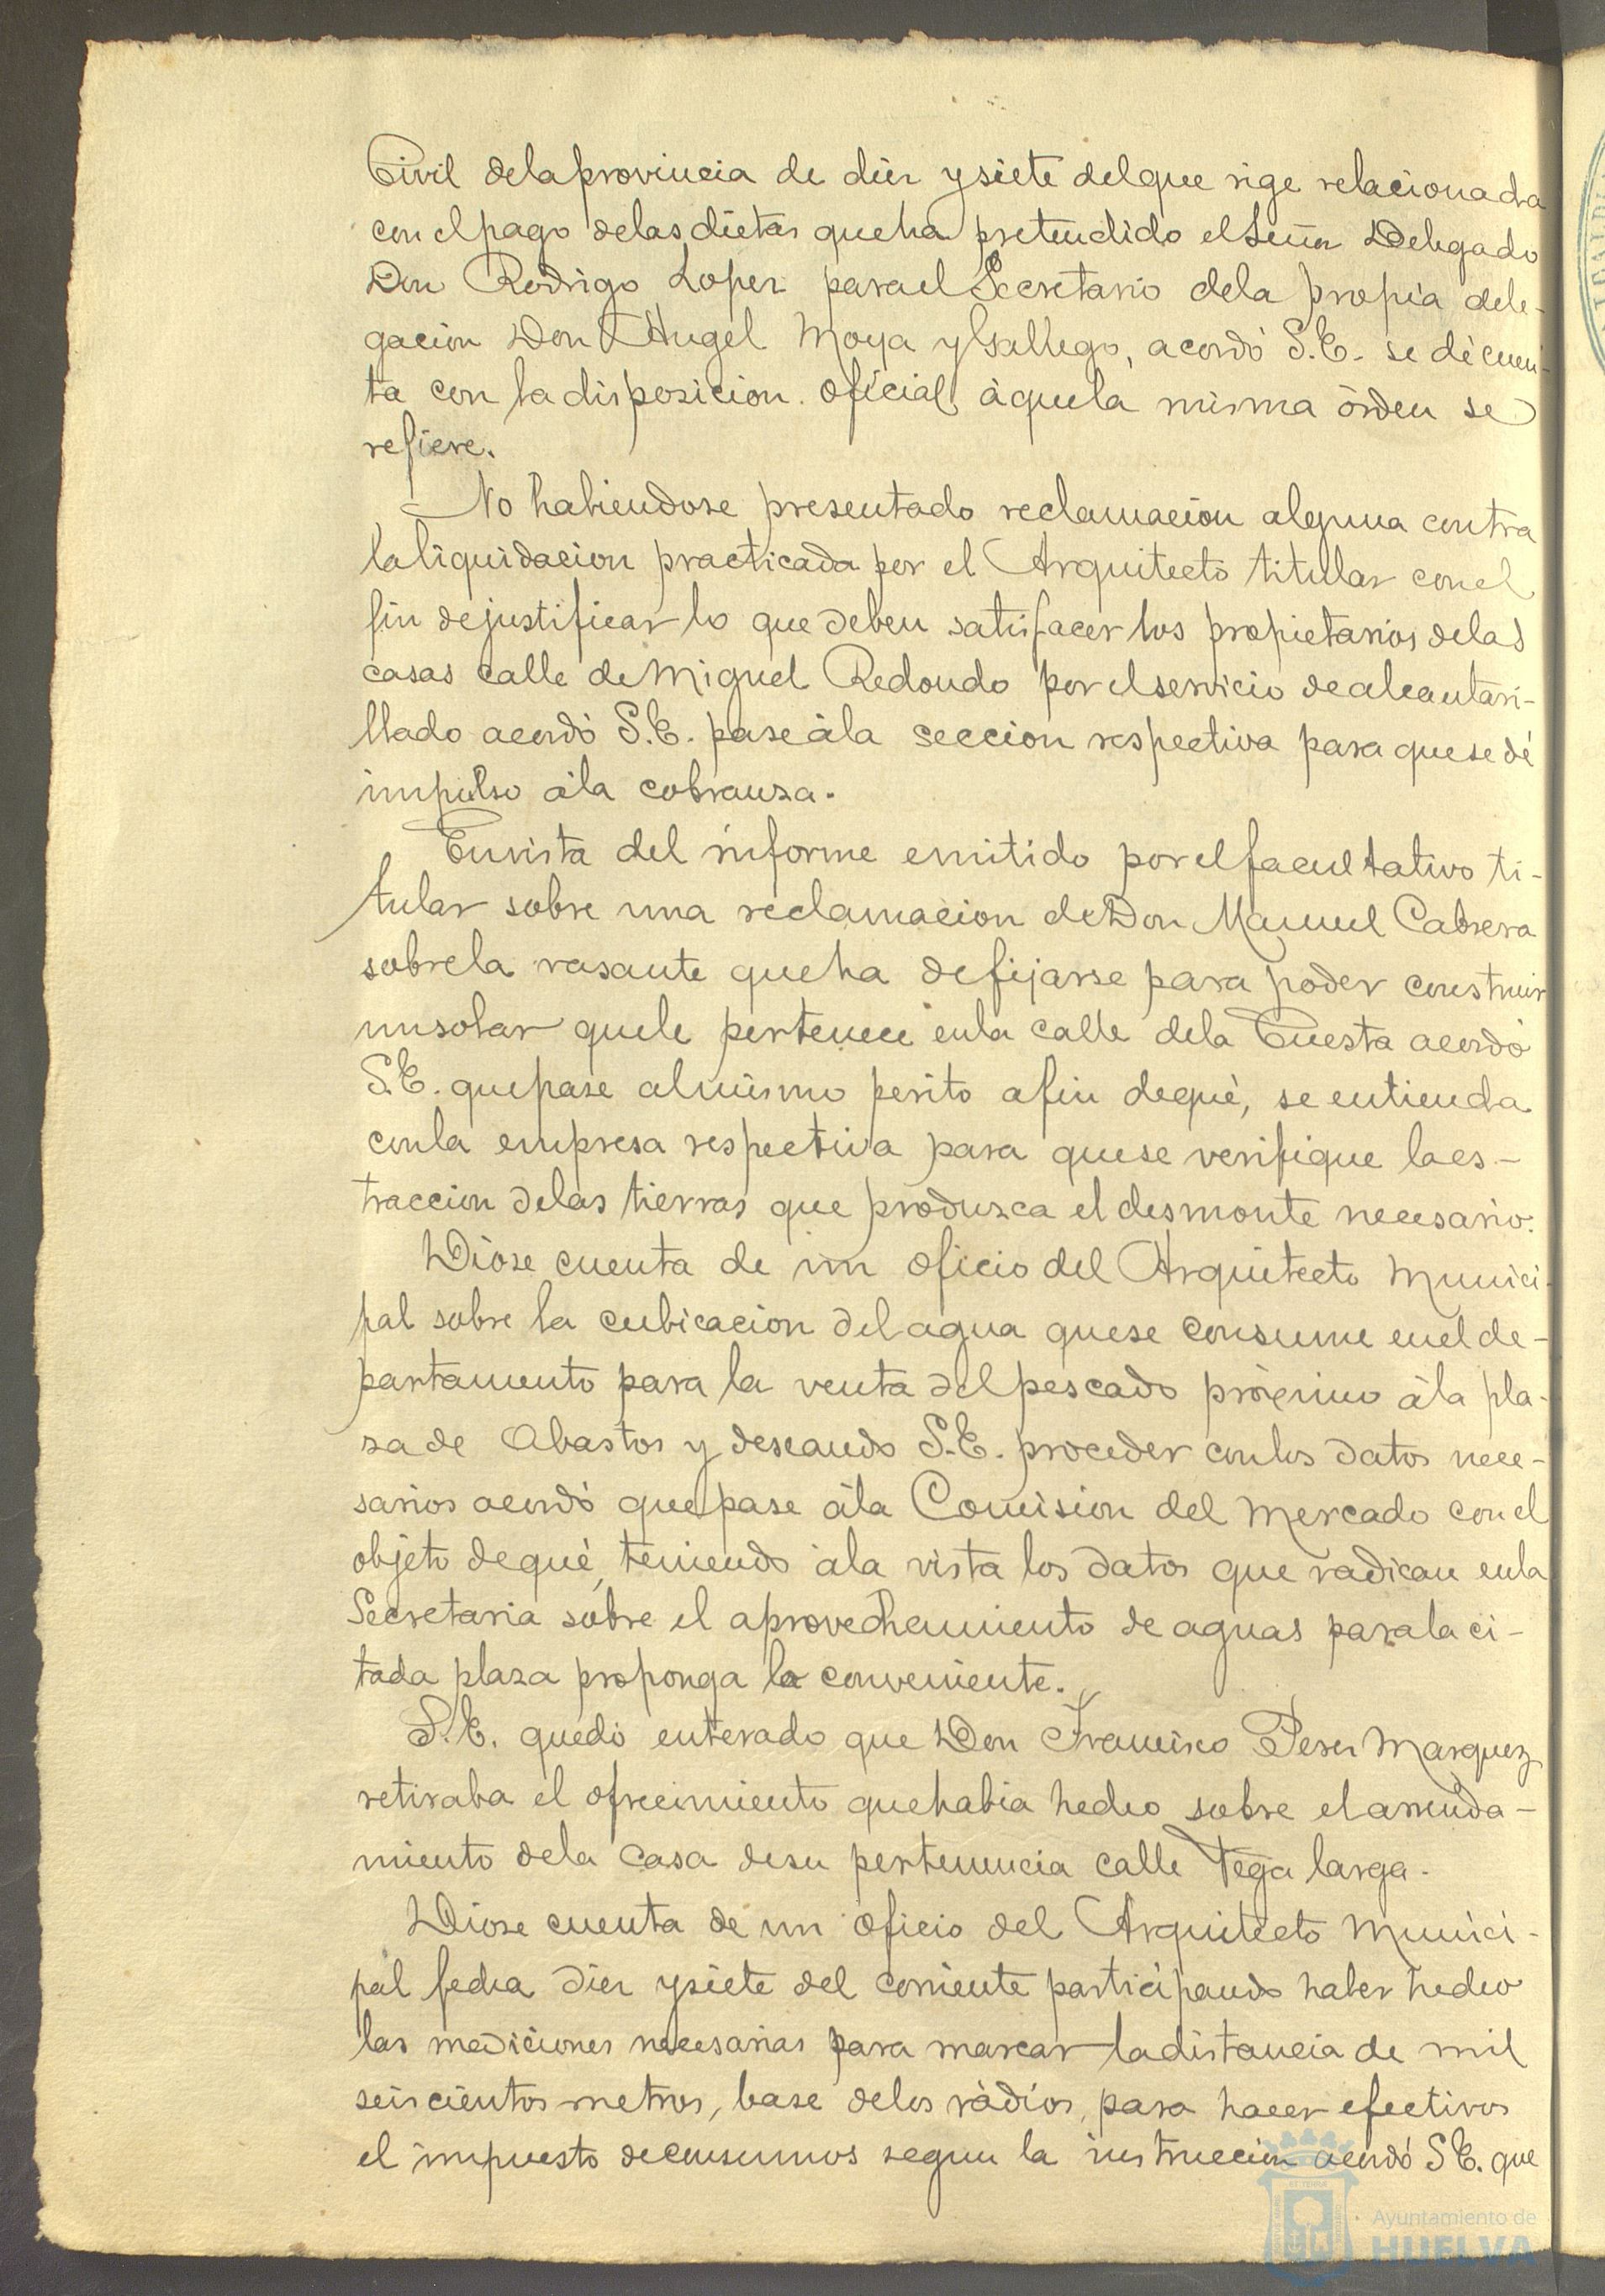 Civil dela provincia de diez y siete del que rige relacionada
con el pago delas dietas que ha pretendido el Señor Delegado
Don Rodrigo Lopez para el Secretario dela propia dele-
gacion Don Angel Moya y Gallego, acordó S.E. se dé cuen-
ta con la disposicion oficial á que la misma órden se
refiere.
No habiendose presentado reclamacion alguna contra
la liquidacion practicada por el Arquitecto titular con el
fin de justificar lo que deben satisfacer los propietarios delas
casas calle de Miguel Redondo por el servicio de alcantari-
llado acordó S.E. pase á la seccion respectiva para que se dé
impulso á la cobranza.
En vista del informe emitido por el facultativo ti-
tular sobre una reclamacion de Don Manuel Cabrera
sobre la rasante que ha de fijarse para poder construir
un solar que le pertenece en la calle dela Cuesta acordó
S.E. que pase al mismo perito a fin de qué, se entienda
con la empresa respectiva para que se verifique la es-
traccion delas tierras que produzca el desmonte necesario.
Dióse cuenta de un oficio del Arquitecto Munici-
pal sobre la cubicacion del agua que se consume en el de-
partamento para la venta del pescado próximo á la pla-
za de Abastos y deseando S.E. proceder con los datos nece-
sarios acordó que pase á la Comision del Mercado con el
objeto de qué, teniendo á la vista los datos que radican en la
Secretaria sobre el aprovechamiento de aguas para la ci-
tada plaza proponga lo conveniente.
S.E. quedó enterado que Don Francisco Perez Marquez
retiraba el ofrecimiento que habia hecho sobre el arrenda-
miento dela casa de su pertenencia calle Vega larga.
Dióse cuenta de un oficio del Arquitecto Munici-
pal fecha diez y siete del corriente participando haber hecho
las mediciones necesarias para marcar la distancia de mil
seiscientos metros, base delos rádios, para hacer efectivos
el impuesto de consumos segun la instruccion acordó S.E. que
Ayuntamiento de
HUELVA